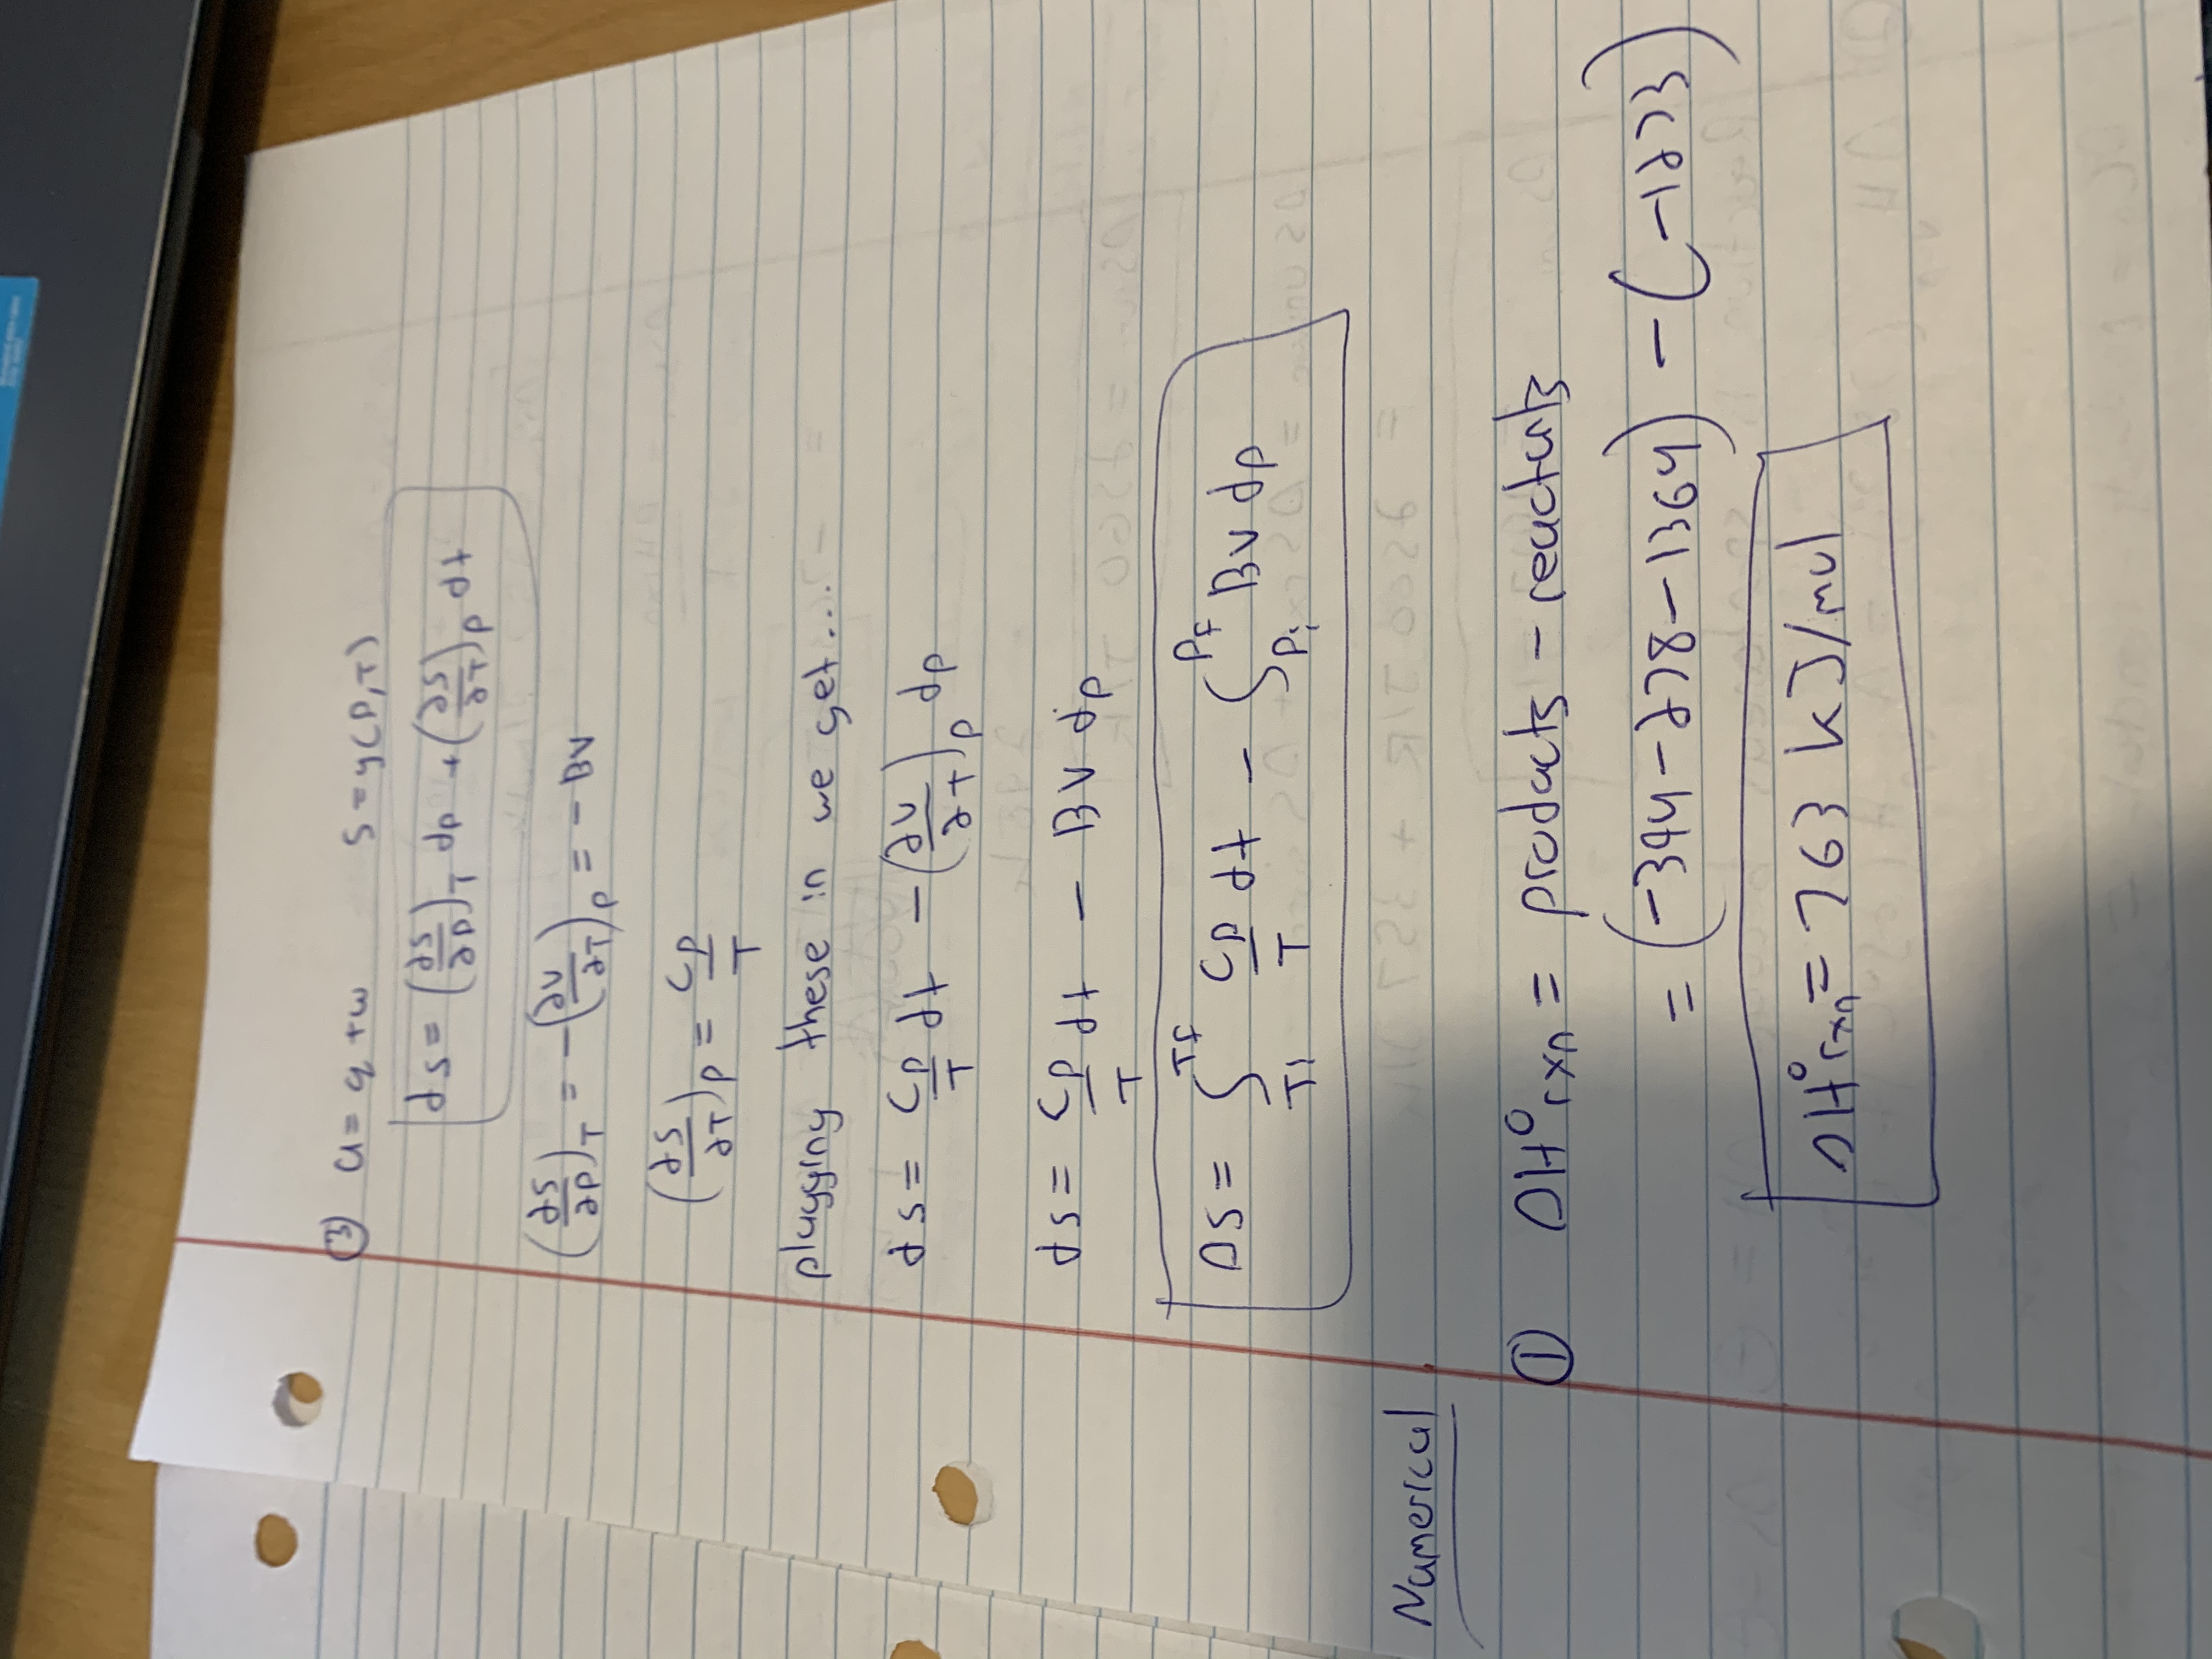 ③ U = q + w S = y(P,T)
dS = (∂S/∂P)_T dp + (∂S/∂T)_P dt
(∂S/∂P)_T = -(∂V/∂T)_P = - BV
(∂S/∂T)_P = CP/T
plugging these in we get...
ds = CP/T dt - (∂V/∂T)_P dp
ds = CP/T dt - BV dp
ΔS = ∫_Ti^Tf CP/T dt - ∫_Pi^Pf BV dp
Numerical
① ΔH°rxn = products - reactants
= (-394-278-1364) - (-1273)
ΔH°rxn = 763 kJ/mol